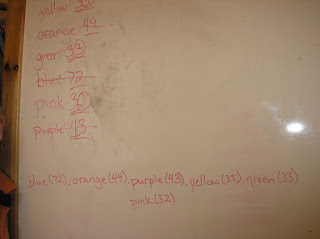 yellow
orange 49
green 33
blue 72
pink
purple 43
blue(72), orange(49), purple(43), yellow(35), green(33)
pink(32)